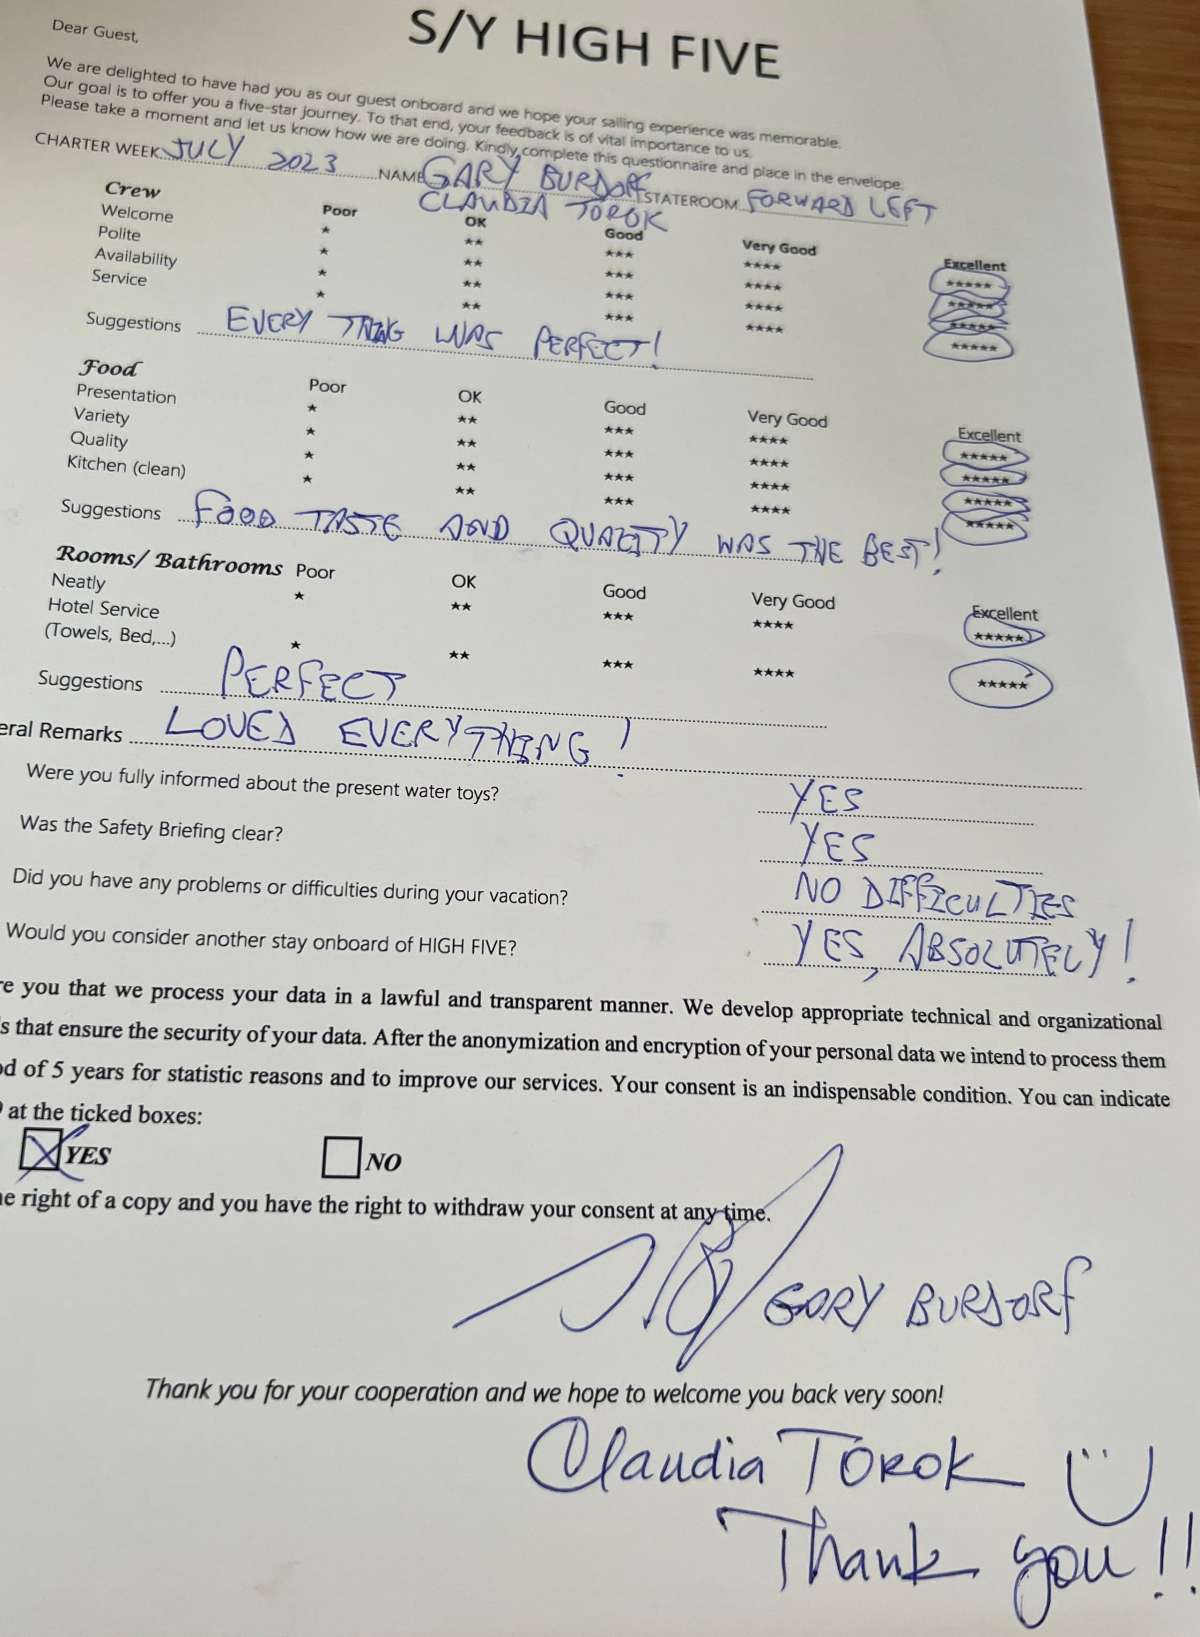 S/Y HIGH FIVE
Dear Guest,
We are delighted to have had you as our guest onboard and we hope your sailing experience was memorable.
Our goal is to offer you a five-star journey. To that end, your feedback is of vital importance to us.
Please take a moment and let us know how we are doing. Kindly complete this questionnaire and place in the envelope.
CHARTER WEEK JULY 2023 NAME GARY BURDORF STATEROOM FORWARD LEFT
CLAUDIA TOROK
Crew Poor OK Good Very Good Excellent
Welcome ★ ★★ ★★★ ★★★★ ★★★★★
Polite ★ ★★ ★★★ ★★★★ ★★★★★
Availability ★ ★★ ★★★ ★★★★ ★★★★★
Service ★ ★★ ★★★ ★★★★ ★★★★★
Suggestions EVERY THING WAS PERFECT!
Food Poor OK Good Very Good Excellent
Presentation ★ ★★ ★★★ ★★★★ ★★★★★
Variety ★ ★★ ★★★ ★★★★ ★★★★★
Quality ★ ★★ ★★★ ★★★★ ★★★★★
Kitchen (clean) ★ ★★ ★★★ ★★★★ ★★★★★
Suggestions FOOD TASTE AND QUALITY WAS THE BEST!
Rooms/ Bathrooms Poor OK Good Very Good Excellent
Neatly ★ ★★ ★★★ ★★★★ ★★★★★
Hotel Service
(Towels, Bed,...) ★ ★★ ★★★ ★★★★ ★★★★★
Suggestions PERFECT
eral Remarks LOVED EVERYTHING!
Were you fully informed about the present water toys? YES
Was the Safety Briefing clear? YES
Did you have any problems or difficulties during your vacation? NO DIFFICULTIES
Would you consider another stay onboard of HIGH FIVE? YES, ABSOLUTELY!
re you that we process your data in a lawful and transparent manner. We develop appropriate technical and organizational
s that ensure the security of your data. After the anonymization and encryption of your personal data we intend to process them
od of 5 years for statistic reasons and to improve our services. Your consent is an indispensable condition. You can indicate
at the ticked boxes:
YES NO
he right of a copy and you have the right to withdraw your consent at any time.
GARY BURDORF
Thank you for your cooperation and we hope to welcome you back very soon!
Claudia TOROK
Thank you!!